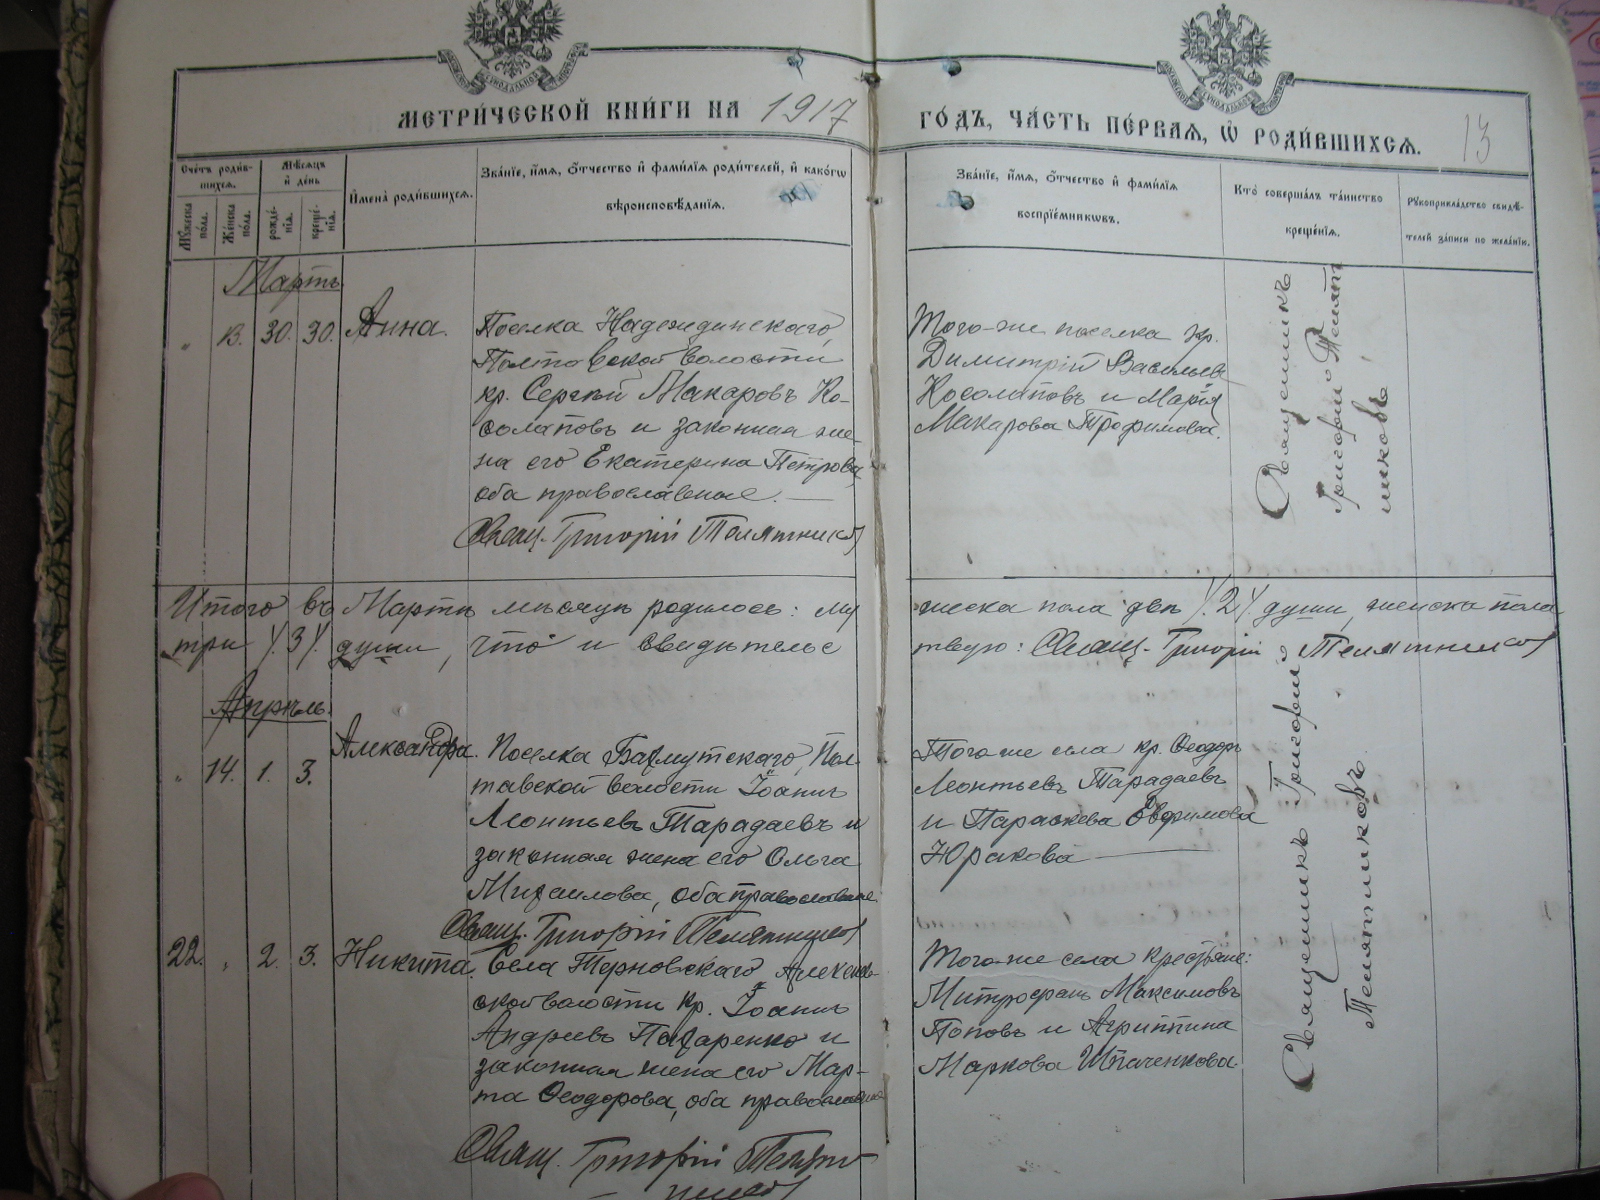 МЕТРИ́ЧЕСКОЙ КНИ́ГИ НА 1917 ГО́ДЪ, ЧА́СТЬ ПЕ́РВАЯ, Ѡ РОДИ́ВШИХСЯ. 13
Сче́тъ роди́в-
шихся.
Мѣ́сяцъ
и де́нь
Мꙋ́жеска по́ла.
Же́нска по́ла.
рожде́-
нїя.
креще́-
нїя.
Имена̀ роди́вшихся.
Зва́нїе, и́мя, о́тчество и фами́лїя роди́телей, и како́гѡ
вѣроисповѣ́данїя.
Зва́нїе, и́мя, о́тчество и фами́лїя
воспрїе́мникѡвъ.
Кто̀ соверша́лъ та́инство
креще́нїя.
Рꙋкоприкла́дство свидѣ́-
телей за́писи по жела́нїю.
Мартъ
13. 30. 30. Анна.
Поселка Надеждинскаго,
Полтавской волости
кр. Сергѣй Макаровъ Ко-
солаповъ и законная же-
на его Екатерина Петрова,
оба православные.
Свящ. Григорій Телятников
Того-же поселка кр.
Димитрій Васильев
Косолаповъ и Марія
Макарова Трофимова.
Священникъ
Григорій Телят
никовъ
Итого въ Мартѣ мѣсяцѣ родилось: му
жеска пола двѣ /.2/. души, женска пола
три /.3/. души, что и свидѣтельс
твую: Свящ. Григорій Телятников
Апрѣль.
14. 1. 3. Александра.
Поселка Бахмутскаго, Пол-
тавской волости Іоаннъ
Леонтьевъ Тарадаевъ и
законная жена его Ольга
Михаилова, оба православные
Свящ. Григорій Телятников
Того же села кр. Ѳеодоръ
Леонтьевъ Тарадаевъ
и Параскева Евфимова
Юракова
22. 2. 3. Никита.
Села Терновскаго Алексан-
ской волости кр. Іоаннъ
Андреевъ Пахаренко и
законная жена его Мар-
та Ѳеодорова, оба православные
Свящ. Григорій Телят
ников
Того-же села крестьяне:
Митрофанъ Максимовъ
Поповъ и Агриппина
Маркова Шпаченкова.
Священникъ Григорій
Телятниковъ